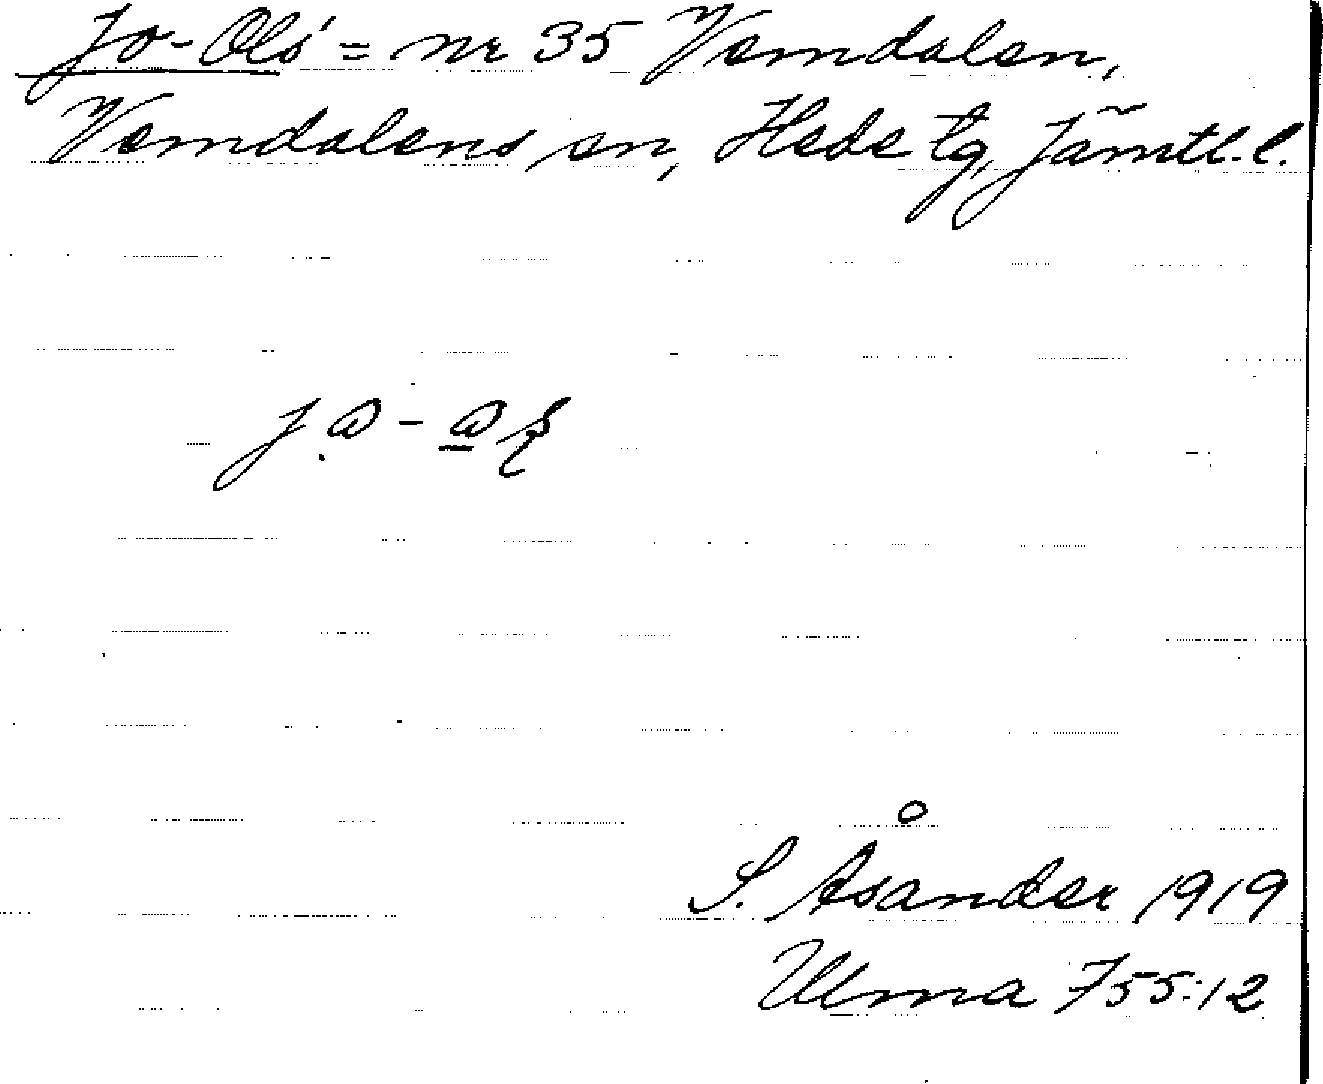 Jo-Ols = nr 35 Vemdalen,
Vemdalens sn, Hede tg, Jämtl. l.
S. Åsander 1919
Ulma 755:12